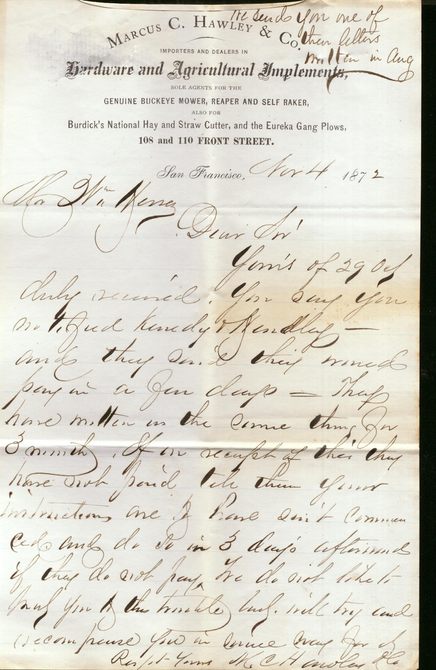 We sends you one of
their letters
written in Aug
MARCUS C. HAWLEY & CO.
IMPORTERS AND DEALERS IN
Hardware and Agricultural Implements,
SOLE AGENTS FOR THE
GENUINE BUCKEYE MOWER, REAPER AND SELF RAKER,
ALSO FOR
Burdick's National Hay and Straw Cutter, and the Eureka Gang Plows,
108 and 110 FRONT STREET.
San Francisco, Nov 4 1872
Wm
Dear Sir
Yours of 29 Oct
duly received. You say you
notified Kenedy &
and they said they would
pay in a few days — They
have written us the same thing for
3 months. If on receipt of this they
have not paid tell them your
instructions are to have suit commen
ced and do so in 3 days afterwards
if they do not pay, We do not like to
put you to this trouble but will try and
recompense you in some way for it
Respt Yours M C Hawley & Co